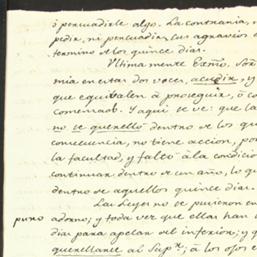 ó persuadirle algo. La contraria, n
pedir, ni persuadir, sus agravios
termino de los quince dias.
Ultimamente Exmo. Sor.
mia en estas dos voces, acudir, y
que equivalen á proseguir, ó co
comenzado. Y aqui se ve: que la
no se querelló dentro de los qu
consecuencia, no tiene accion, por
la facultad, y faltó á la condicio
continuar dentro de un año, lo qu
dentro de aquellos quince dias.
Las Leyes no se pusieron en
puno adorno; y toda vez que ellas han
dias para apelar del inferior, y
querellarse al Supr.; á los ojos